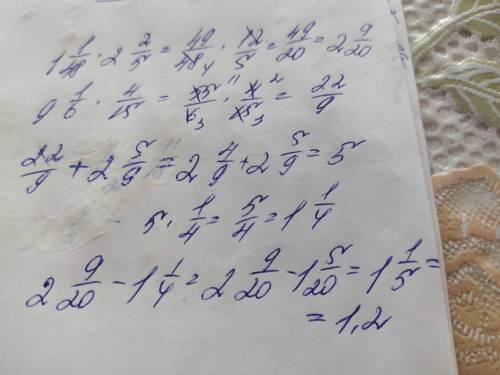 1 1/48 · 2 2/5 = 49/48 4 · 12/5 = 49/20 = 2 9/20
9 1/6 · 4/15 = 55/6 3 11 · 4/15 3 2 = 22/9
22/9 + 2 5/9 = 2 4/9 + 2 5/9 = 5
5 · 1/4 = 5/4 = 1 1/4
2 9/20 - 1 1/4 = 2 9/20 - 1 5/20 = 1 1/5 =
= 1,2